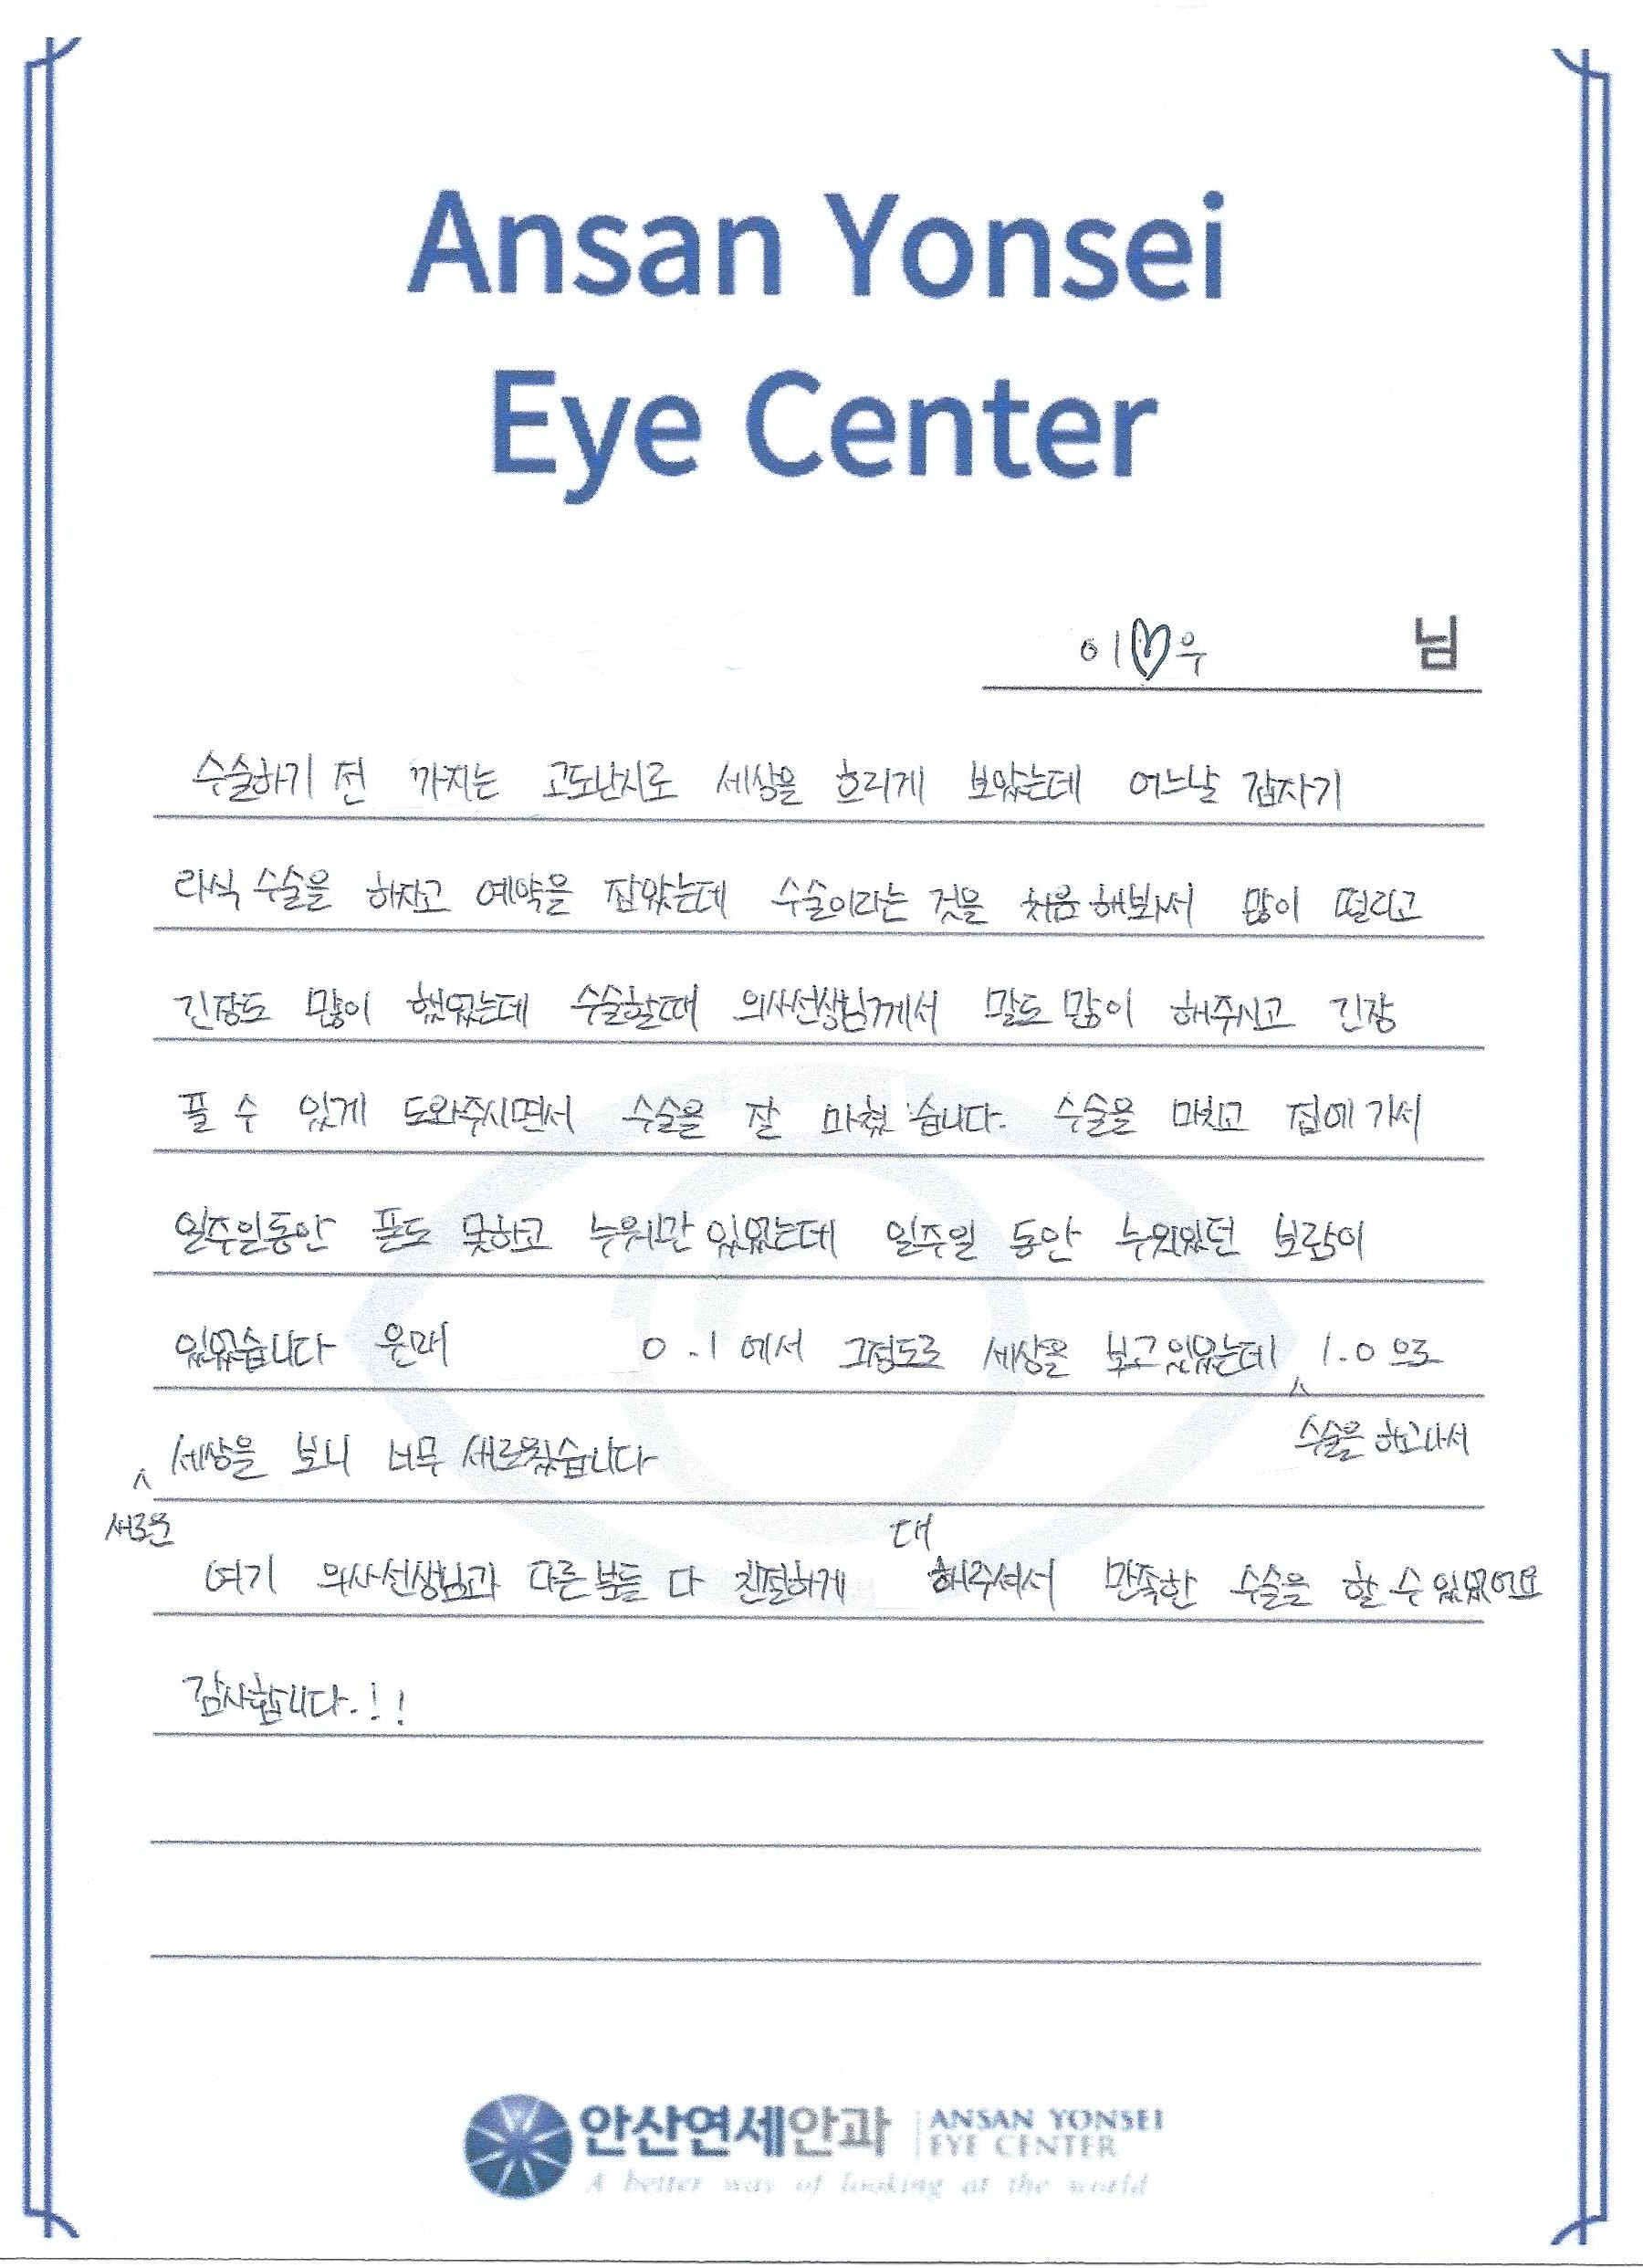 Ansan Yonsei
Eye Center
이♡우 님
수술하기 전 까지는 고도난시로 세상을 흐리게 보았는데 어느날 갑자기
라식 수술을 하자고 예약을 잡았는데 수술이라는 것을 처음 해봐서 많이 떨리고
긴장도 많이 했었는데 수술할때 의사선생님께서 말도 많이 해주시고 긴장
풀 수 있게 도와주시면서 수술을 잘 마쳤습니다. 수술을 마치고 집에 가서
일주일동안 폰도 못하고 누워만 있었는데 일주일 동안 누워있던 보람이
있었습니다 원래 0.1 에서 그정도로 세상을 보고 있었는데 ^ 1.0 으로
수술을 하고나서
^ 세상을 보니 너무 새로웠습니다
새로운
대
여기 의사선생님과 다른 분들 다 친절하게 해주셔서 만족한 수술을 할 수 있었어요
감사합니다.!!
안산연세안과 ANSAN YONSEI
EYE CENTER
A better way of looking at the world